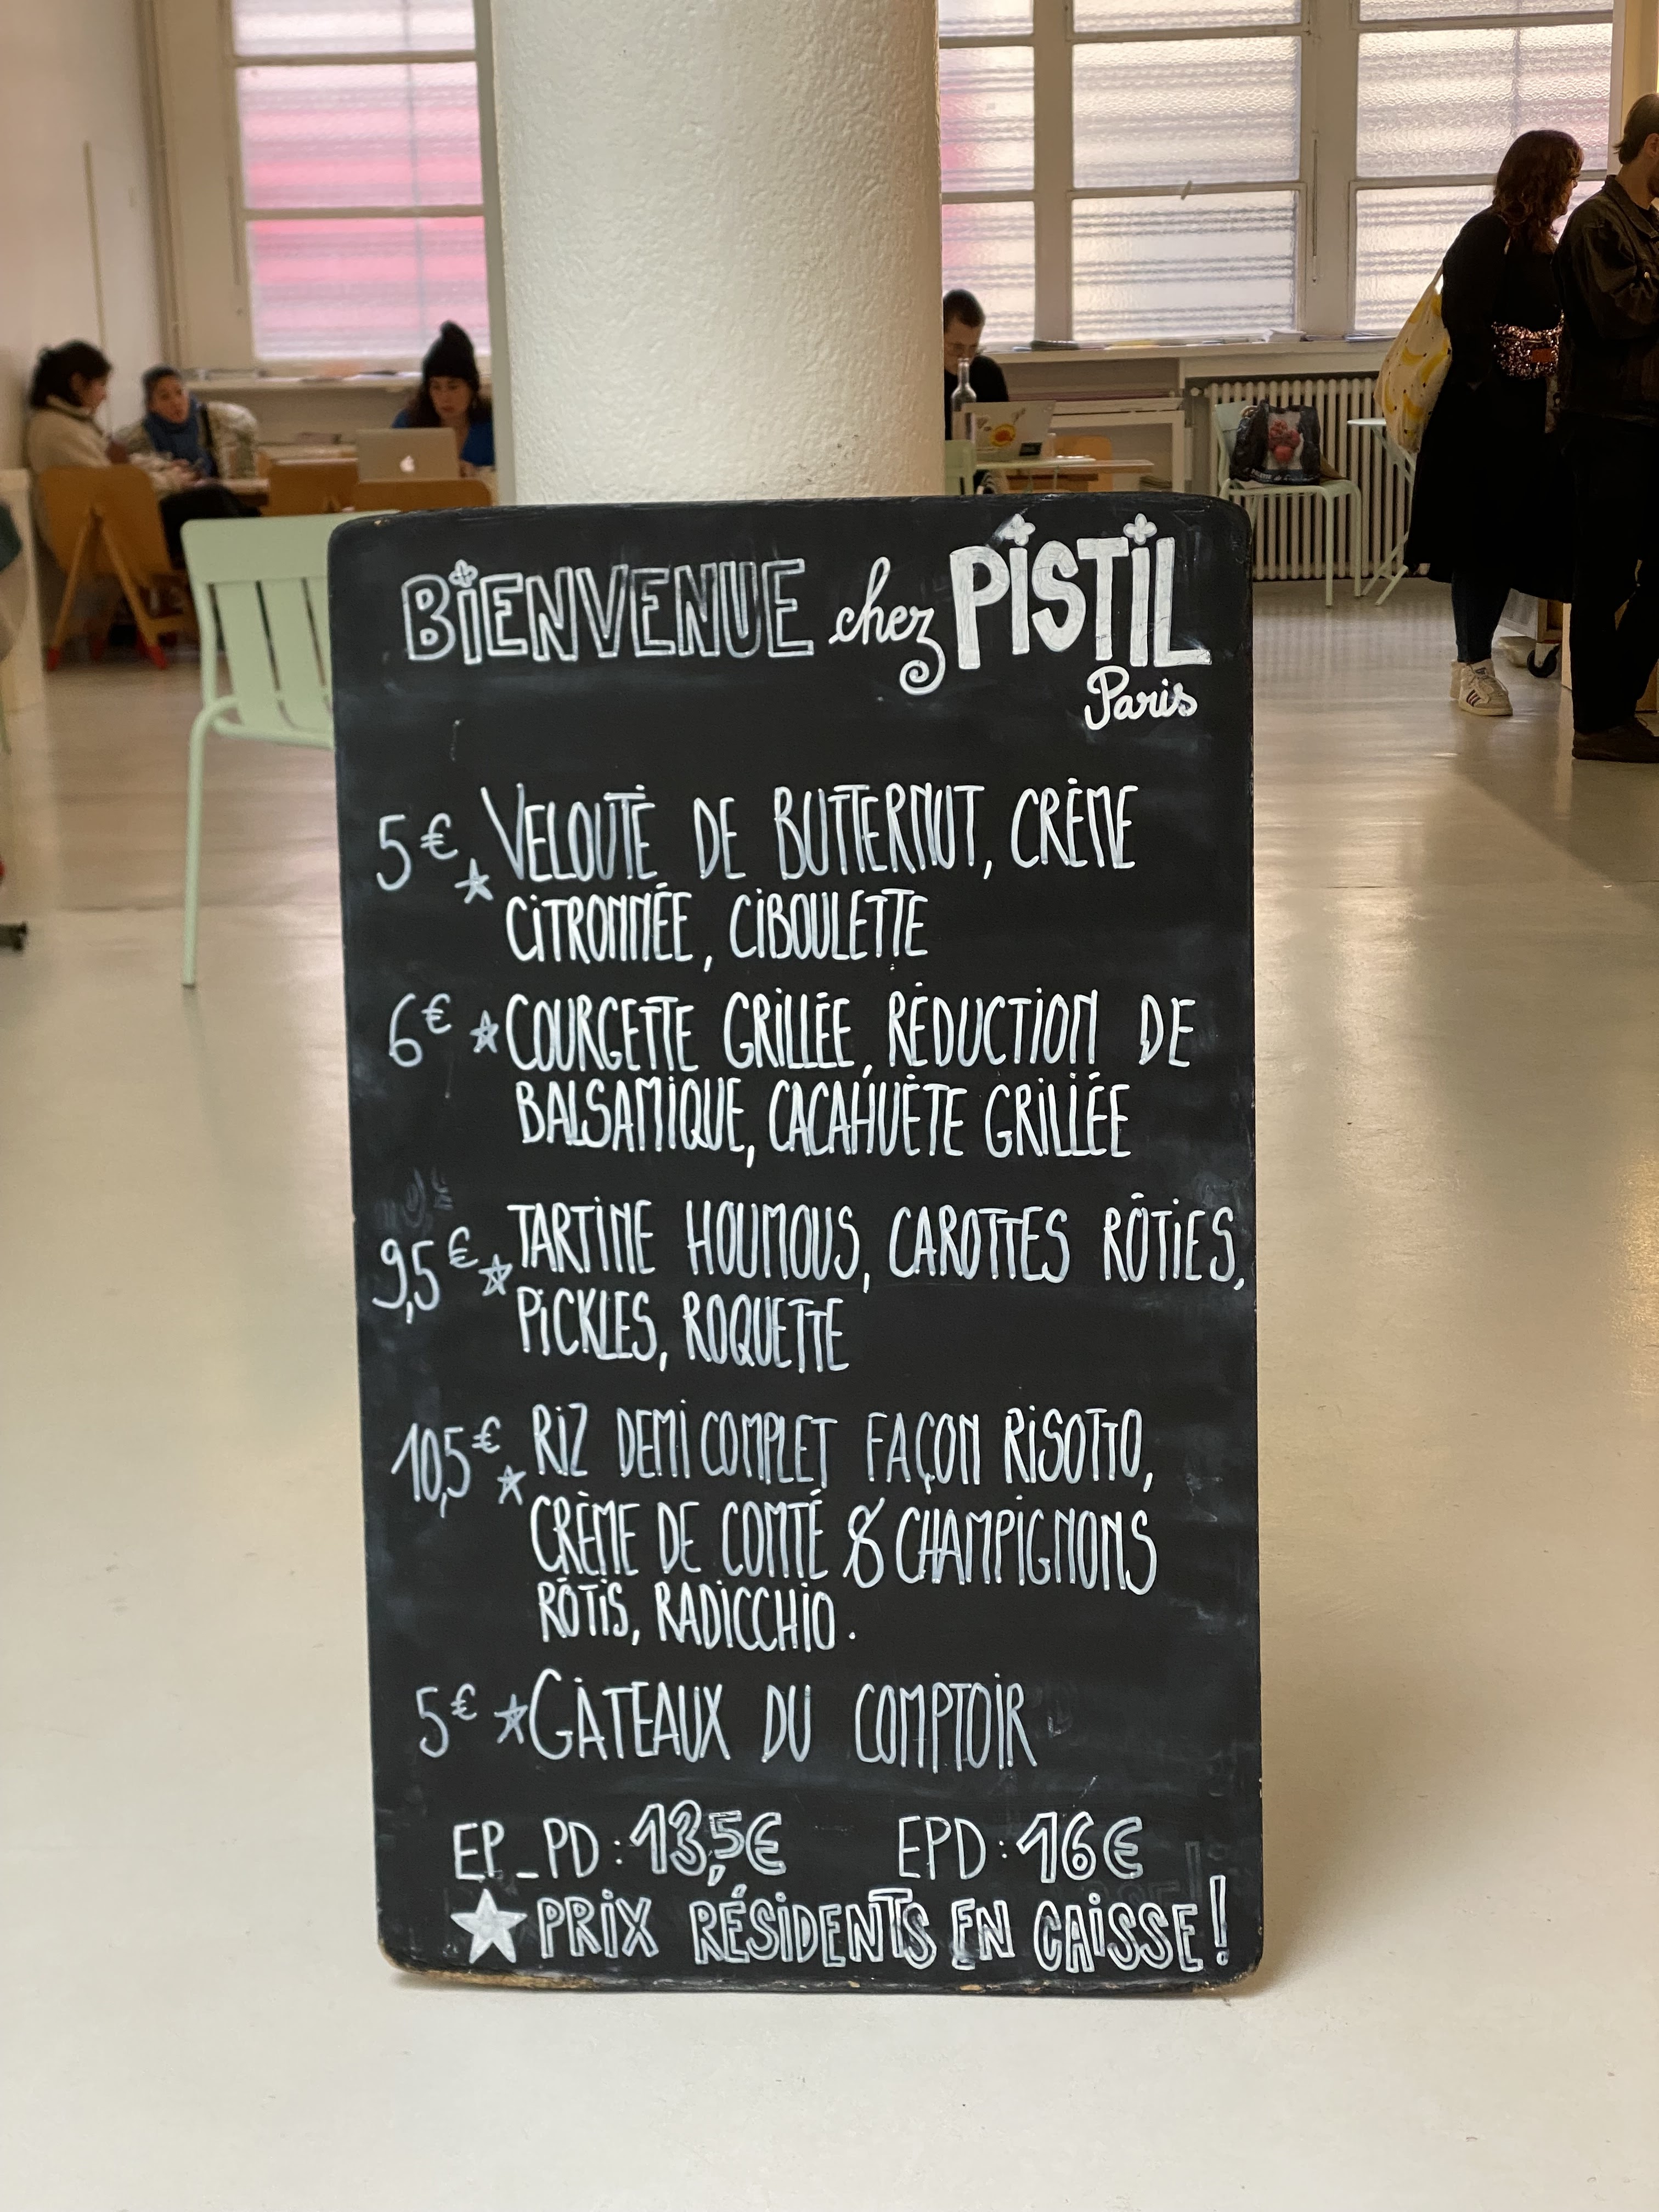 BiENVENUE chez PiSTiL
Paris
5€ ★ VELOUTÉ DE BUTTERNUT, CRÈME
CiTRONNÉE, CiBOULETTE
6€ ★ COURGETTE GRiLLÉE, RÉDUCTiON DE
BALSAMiQUE, CACAHUÈTE GRiLLÉE
9,5€ ★ TARTiNE HOUMOUS, CAROTTES RÔTiES,
PiCKLES, ROQUETTE
10,5€ ★ RiZ DEMi COMPLET FAÇON RiSOTTO,
CRÈME DE COMTÉ & CHAMPiGNONS
RÔTiS, RADiCCHiO.
5€ ★ GÂTEAUX DU COMPTOiR
EP_PD : 13,5€ EPD : 16€
★ PRiX RÉSiDENTS EN CAiSSE !